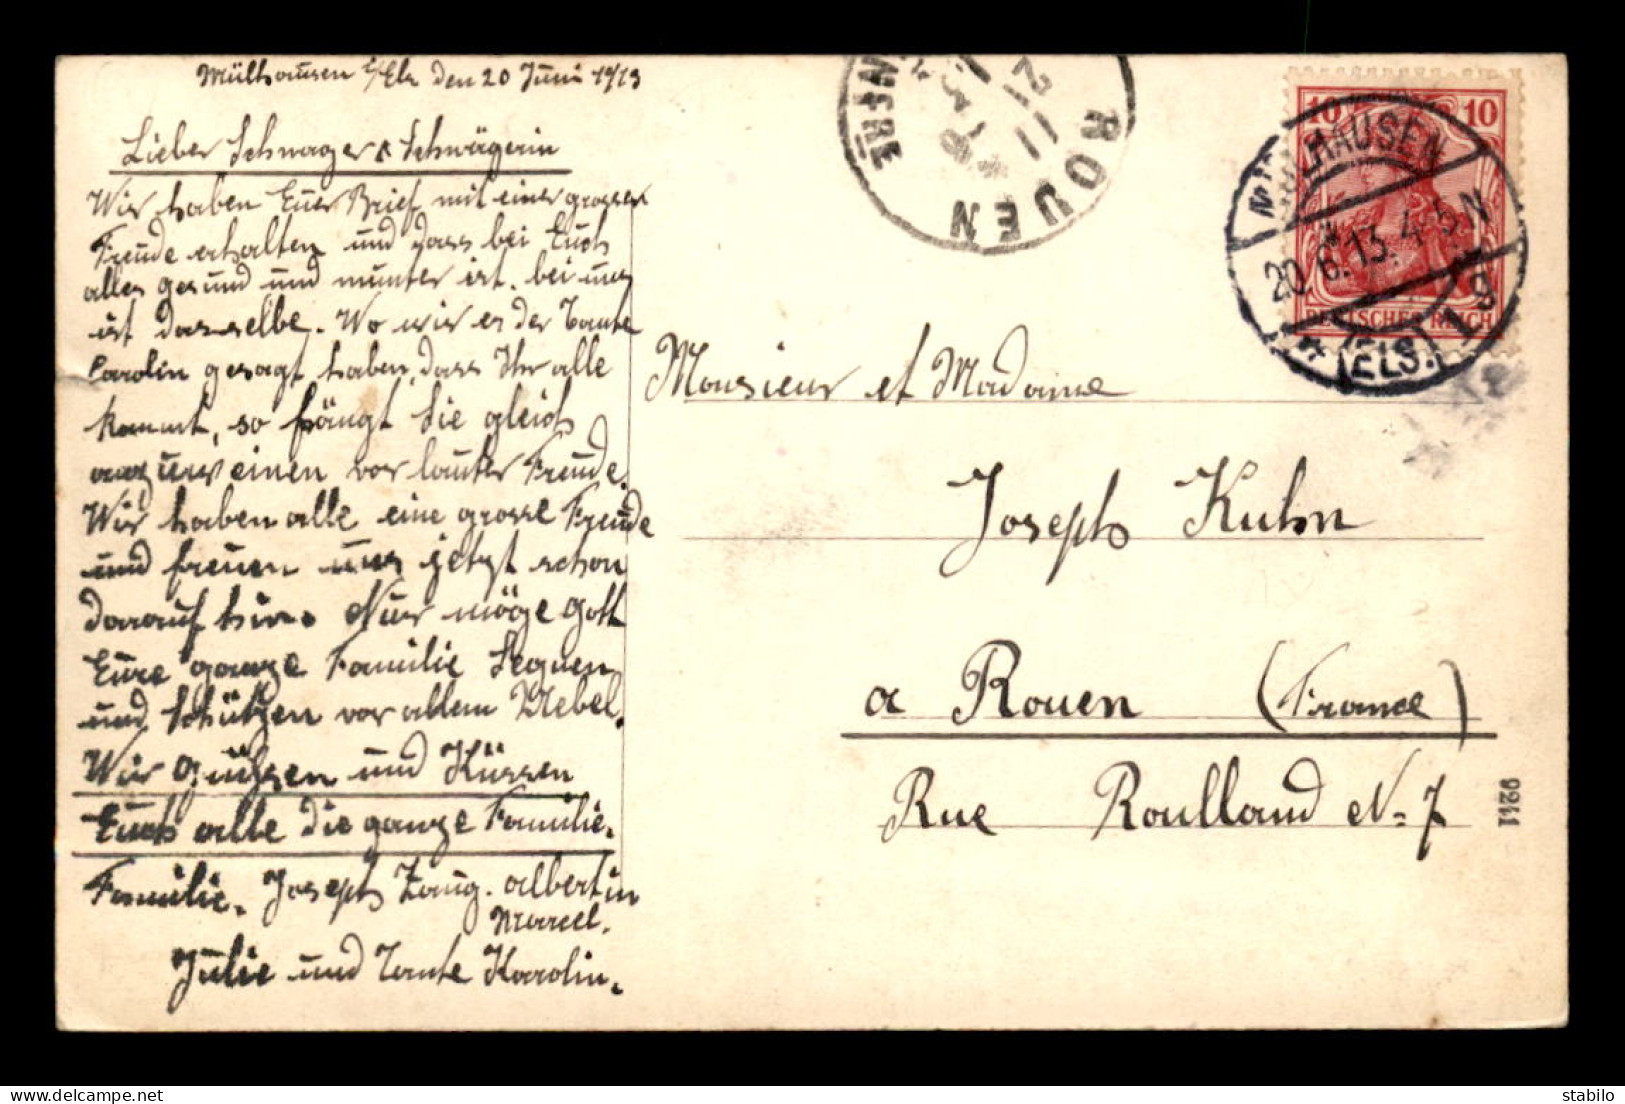 Mülhausen i/Els den 20 Juni 1913
Lieber Schwager & Schwägerin
Wir haben Euer Brief mit einer grossen
Freude erhalten und dass bei Euch
alles gesund und munter ist. bei uns
ist dasselbe. Wo wir es der Tante
Carolin gesagt haben, dass Ihr alle
kommt, so fängt Sie gleich
an zu weinen vor lauter Freude.
Wir haben alle eine grosse Freude
und freuen uns jetzt schon
darauf hin. Nur möge Gott
Eure ganze Familie Segnen
und Schützen vor allem Uebel.
Wir Grüssen und Küssen
Euch alle die ganze Familie.
Familie. Joseph Zaug. Albertin
Marcel.
Julie und Tante Karolin.
ROUEN
21
11
10 10
DEUTSCHES REICH
MÜLHAUSEN
20.6.13. 4-5 N
* (ELS.) 1 g
Monsieur et Madame
Joseph Kuhn
a Rouen (France)
Rue Roulland N= 7
9241
stabilo